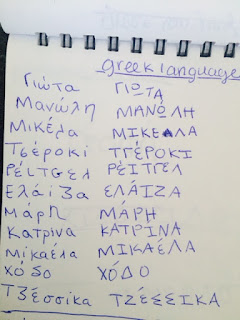 greek language
Γιώτα ΓΙΩΤΑ
Μανώλη ΜΑΝΩΛΗ
Μικέλα ΜΙΚΕΛΑ
Τσέροκι ΤΣΈΡΟΚΙ
Ρέιτσελ ΡΕΙΤΣΕΛ
Ελάιζα ΕΛΆΙΖΑ
Μάρη ΜΆΡΗ
Κατρίνα ΚΑΤΡΙΝΑ
Μικαέλα ΜΙΚΑΈΛΑ
Χόδο ΧΌΔΟ
Τζέσσικα ΤΖΈΣΣΙΚΑ